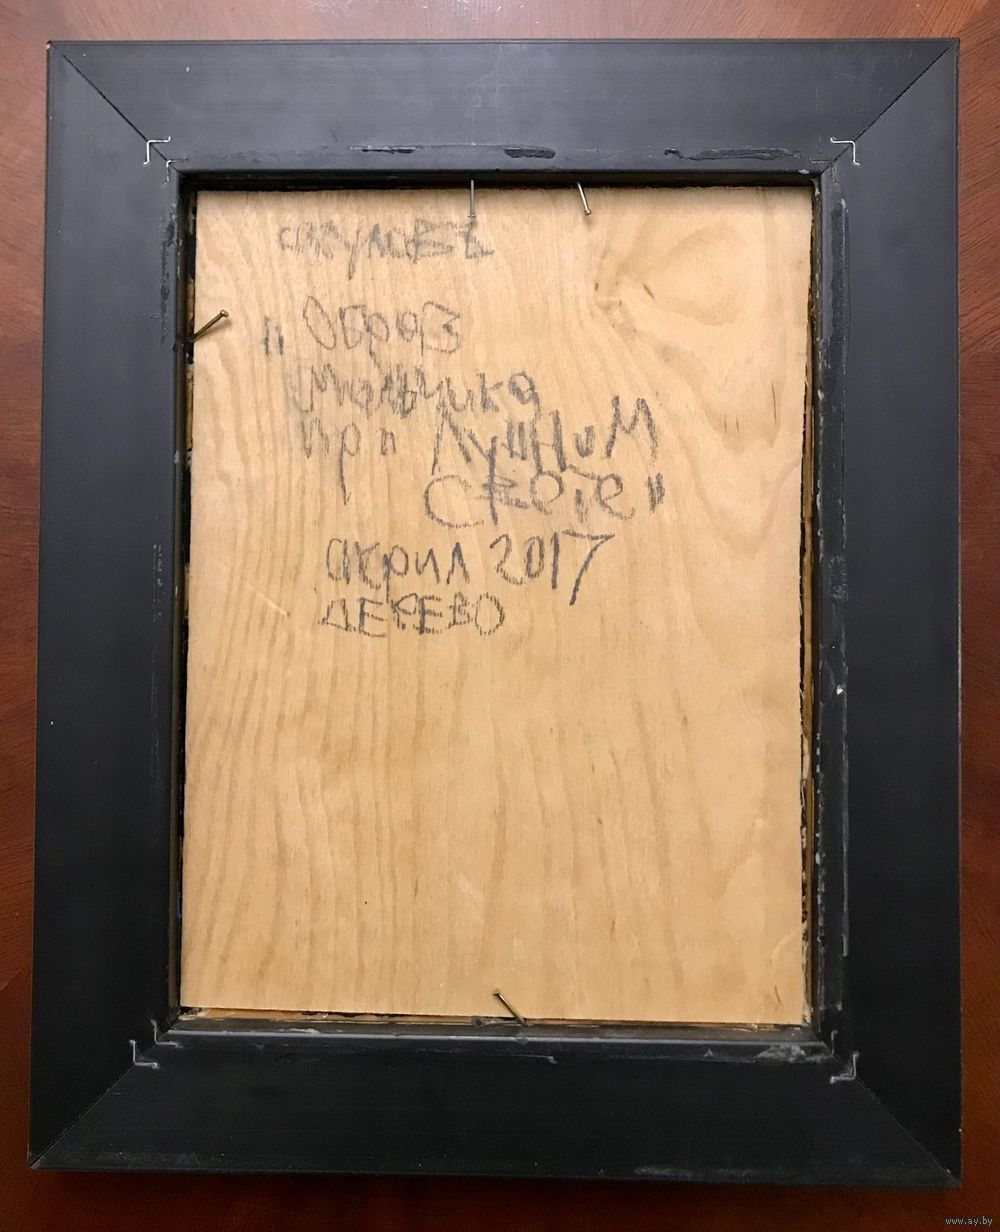 „Образ
мальчика
при Лунном
свете"
акрил 2017
ДЕРЕВО
www.ay.by